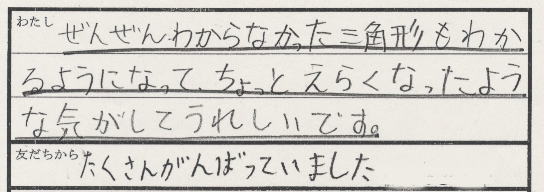 わたし
ぜんぜんわからなかった三角形もわか
るようになって、ちょっとえらくなったよう
な気がしてうれしいです。
友だちから たくさんがんばっていました